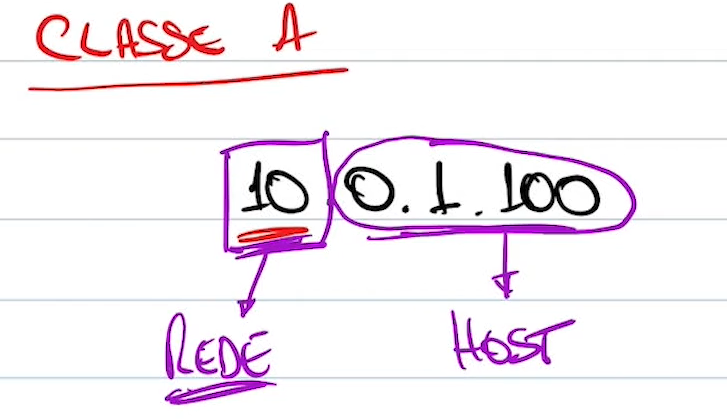 CLASSE A
10 0.1.100
REDE HOST